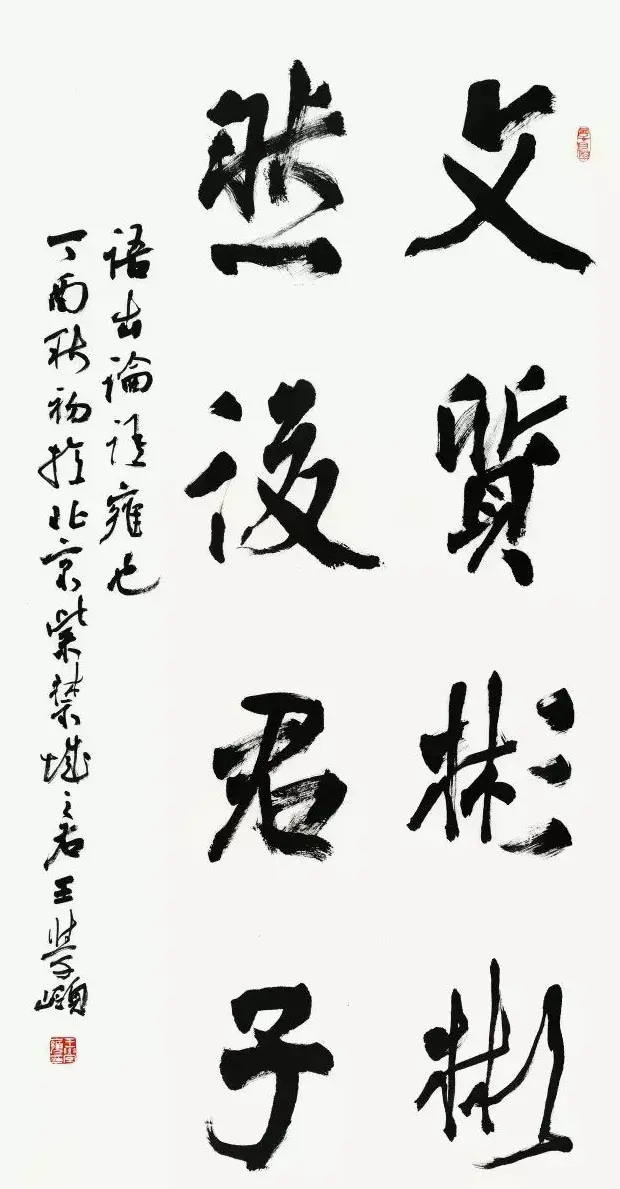 文質彬彬
然後君子
语出論语雍也
丁酉秋初於北京紫禁城之右王学嶺